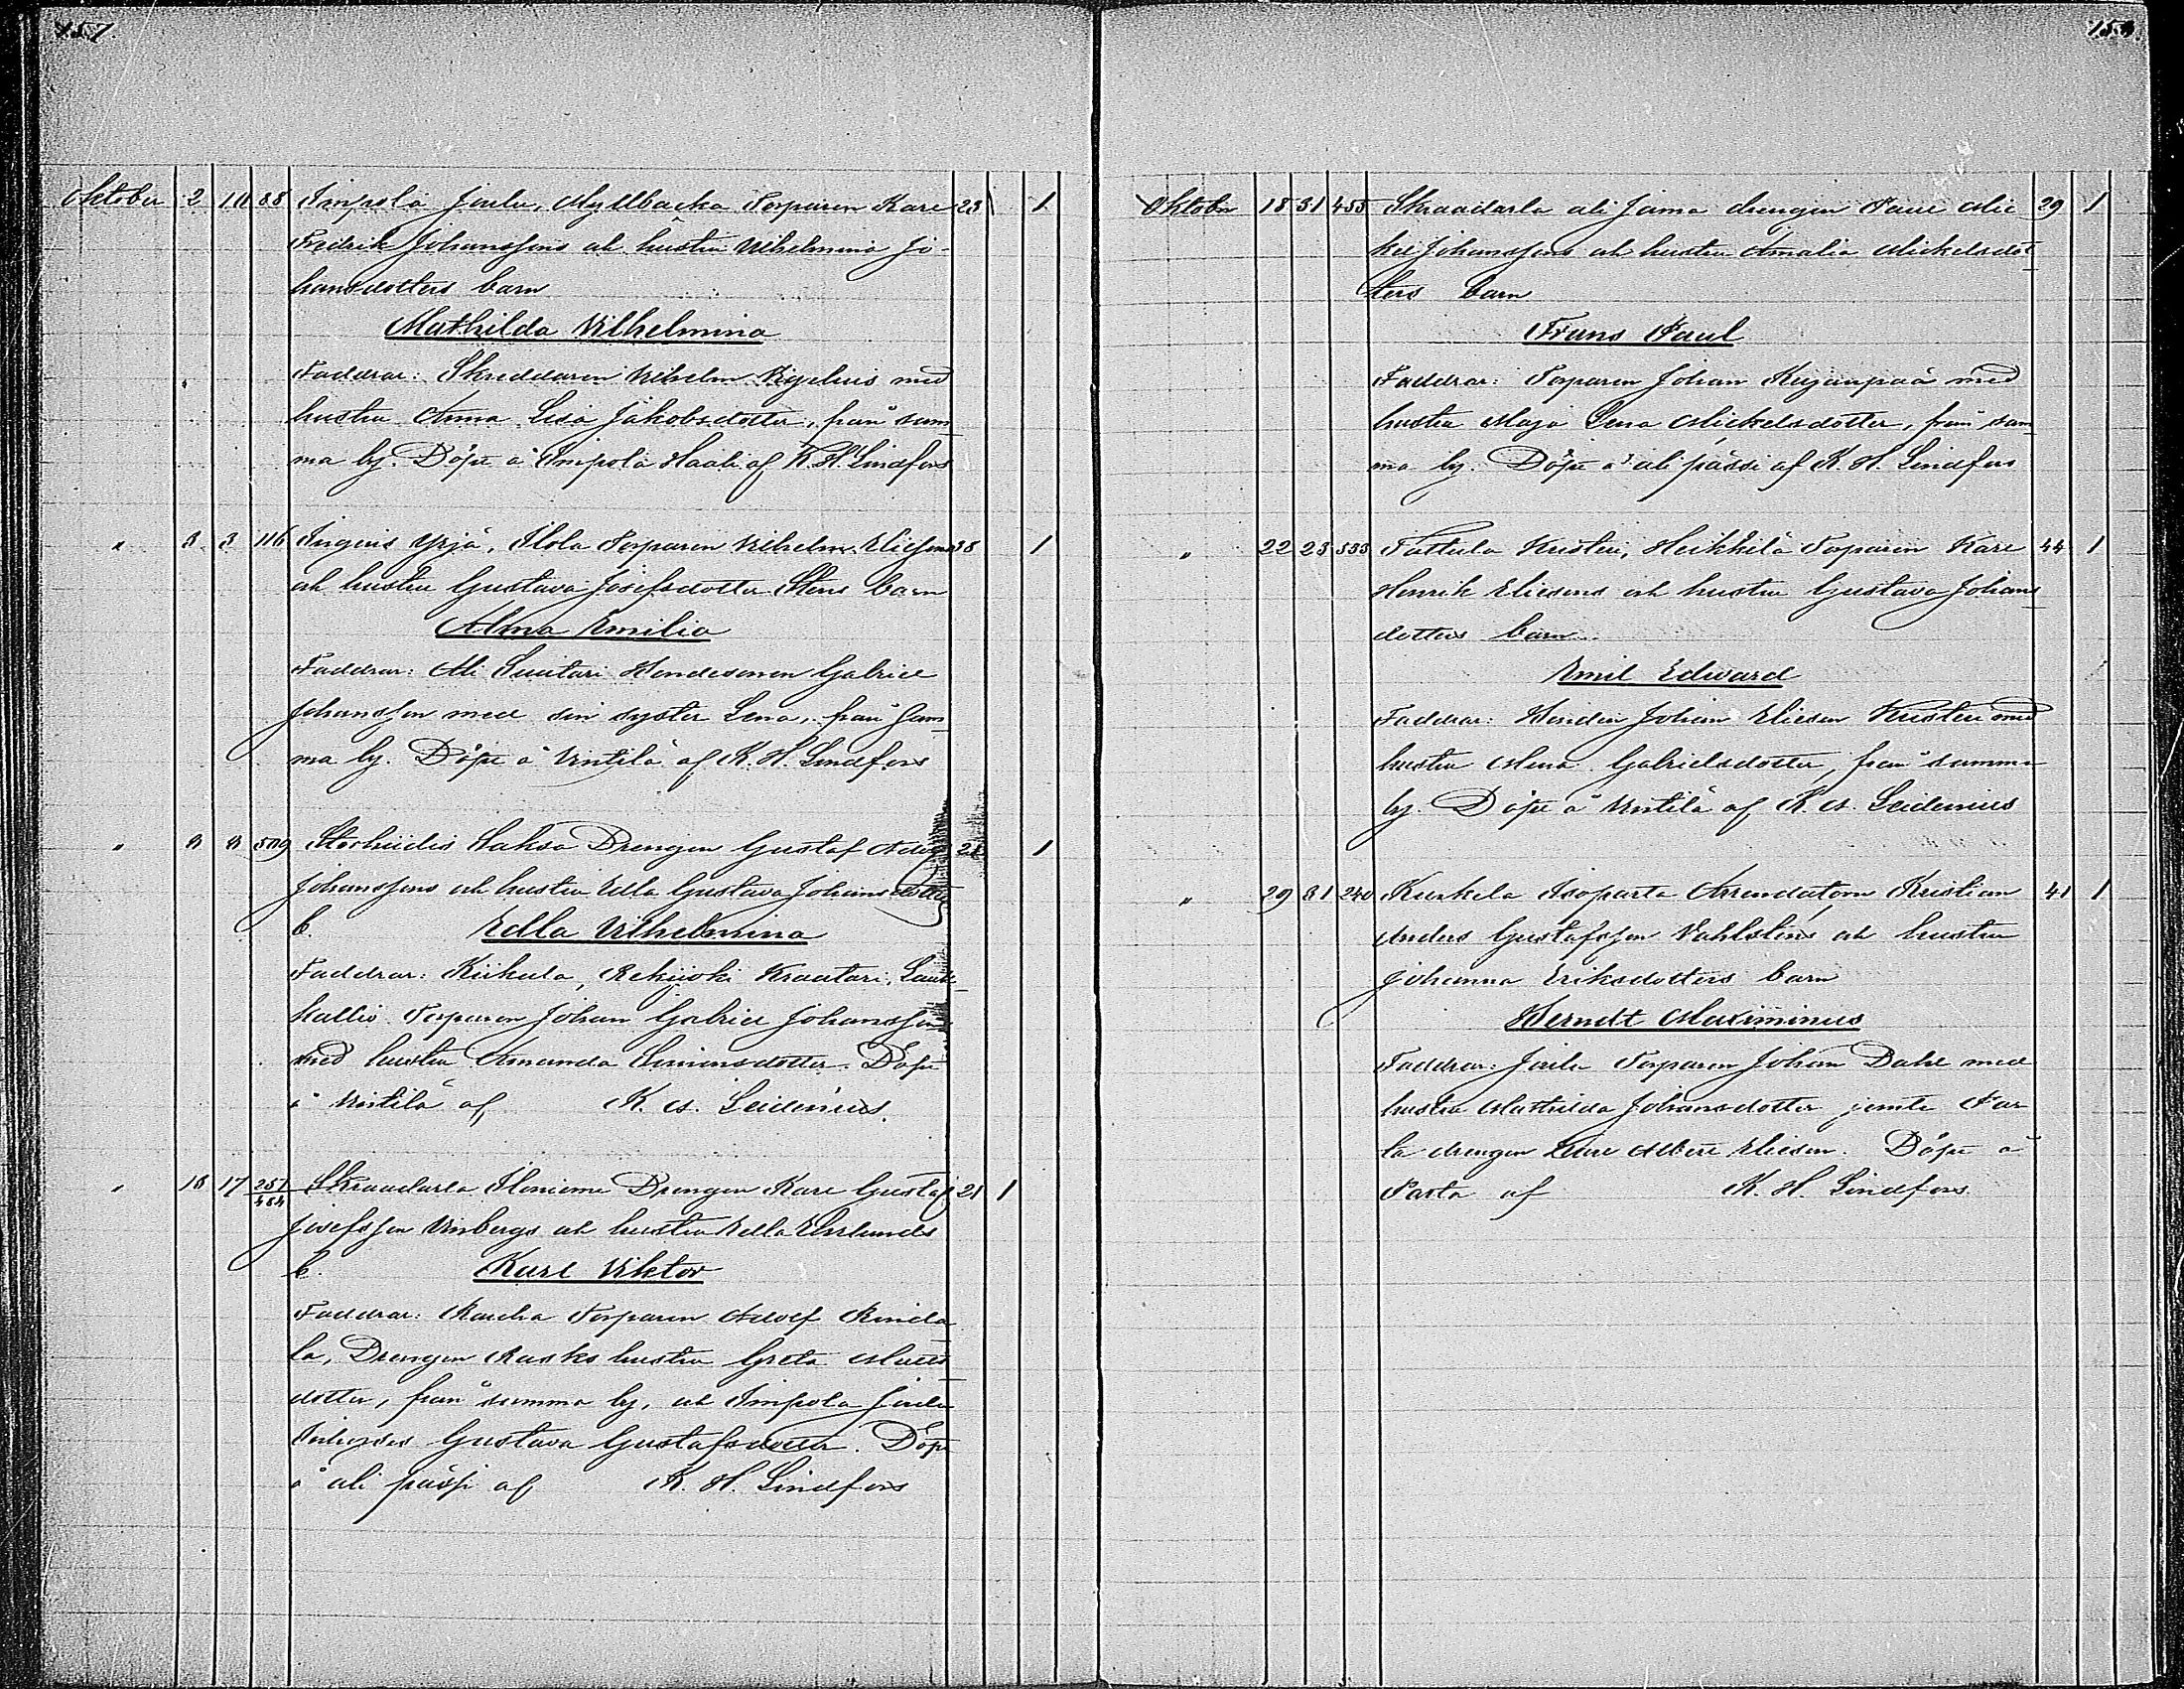 157.
Oktober 2 10 88 Impola Joulu, Myllbacka Torparen Karl 23 1
Fredrik Johanssons och hustru Vilhelmina Jo-
hansdotters barn
Mathilda Vilhelmina
Faddrar: Skreddaren Vilhelm Vigelius med
hustru Anna Lisa Jakobsdotter, från sam
ma by. Döpt å Impola Haali af K. H. Lindfors
" 3 3 116 Ingeris Yrjä, Ilola Torparen Vilhelm Eliesens 38 1
och hustru Gustava Josefsdotter Stens barn
Alma Emilia
Faddrar: Ali Suutari Hondesonen Gabriel
Johansson med sin syster Lena, från sam
ma by. Döpt å Untila af K. H. Lindfors
" 3 3 509 Storhiidis Saksa Drengen Gustaf Adolf 21 1
Johanssons och hustru Edla Gustava Johansdotters
b. Edla Vilhelmina
Faddrar: Kiikula, Rekijoki Kraatari, Lauk
kallio Torparen Johan Gabriel Johansson
med hustru Amanda Simonsdotter. Döpt
å Untila af K. A. Leidenius.
" 16 17 251/454 Skraadarla Iloniemi Drengen Karl Gustaf 21 1
Josefsson Vinbergs och hustru Edla Ehrlunds
b. Karl Viktor
Faddrar: Torparen Adolf
la, Drengen Rasks hustru Greta Matts
dotter, från samma by, och Impola Joulu
Gustava Gustafsdotter. Döpt
å ali pässi af K. H. Lindfors
158.
Oktober 18 31 455 Skraadarla ali Jama drengen Paul Mic
kel Johanssons och hustru Amalia Mickelsdot
ters barn
Frans Paul
Faddrar: Torparen Johan Kujanpää med
hustru Maja Lena Mickelsdotter, från sam
ma by. Döpt å ali pässi af K. H. Lindfors
" 22 23 533 Tattula Knuteri, Heikkilä Torparen Karl 44 1
Henrik Eliesens och hustru Gustava Johans
dotters barn
Emil Edward
Faddrar: Bonden Johan Eliesen med
hustru Mina Gabrielsdotter, från samma
by. Döpt å Untila af K. A. Leidenius
" 29 31 240 Kurkela Isoparta Arrendatorn Kristian 41 1
Anders Gustafsson Vahlsténs och hustru
Johanna Eriksdotters barn
Berndt Maximinus
Faddrar: Joulu Torparen Johan Dahl med
hustru Mathilda Johansdotter jemte Par
ta drengen Albert Eliesen. Döpt å
Parta af K. H. Lindfors